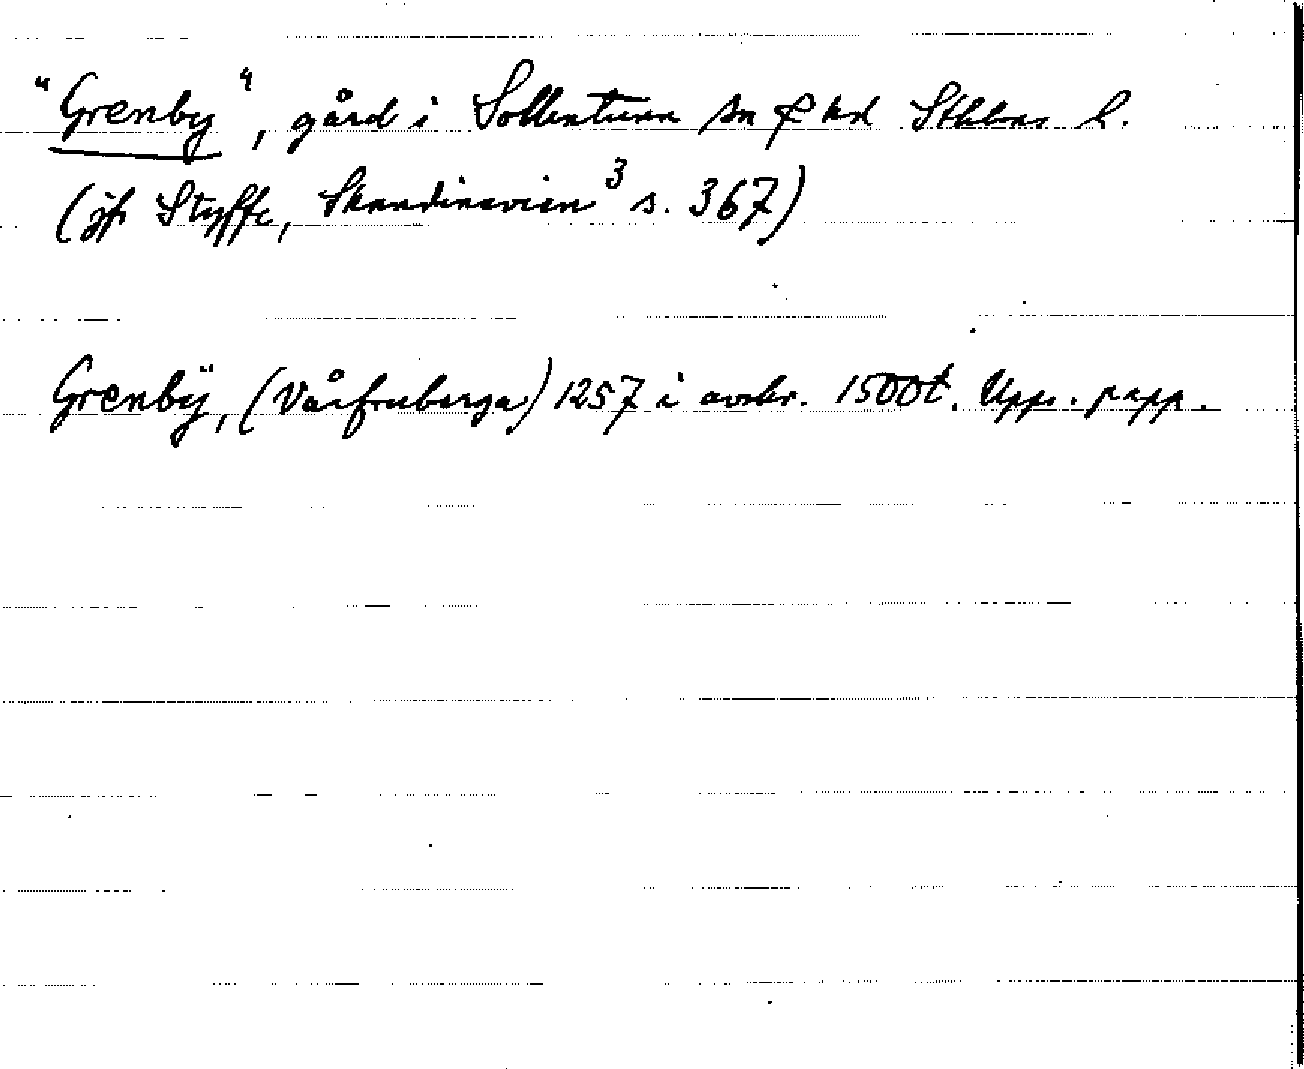 "Grenby", gård i Sollentuna sn & hd Sthlms l.
(jfr Styffe, Skandinavien³ s. 367)
Grenbÿ, (Vårfruberga) 1257 i avskr. 1500t. Upps. papp.